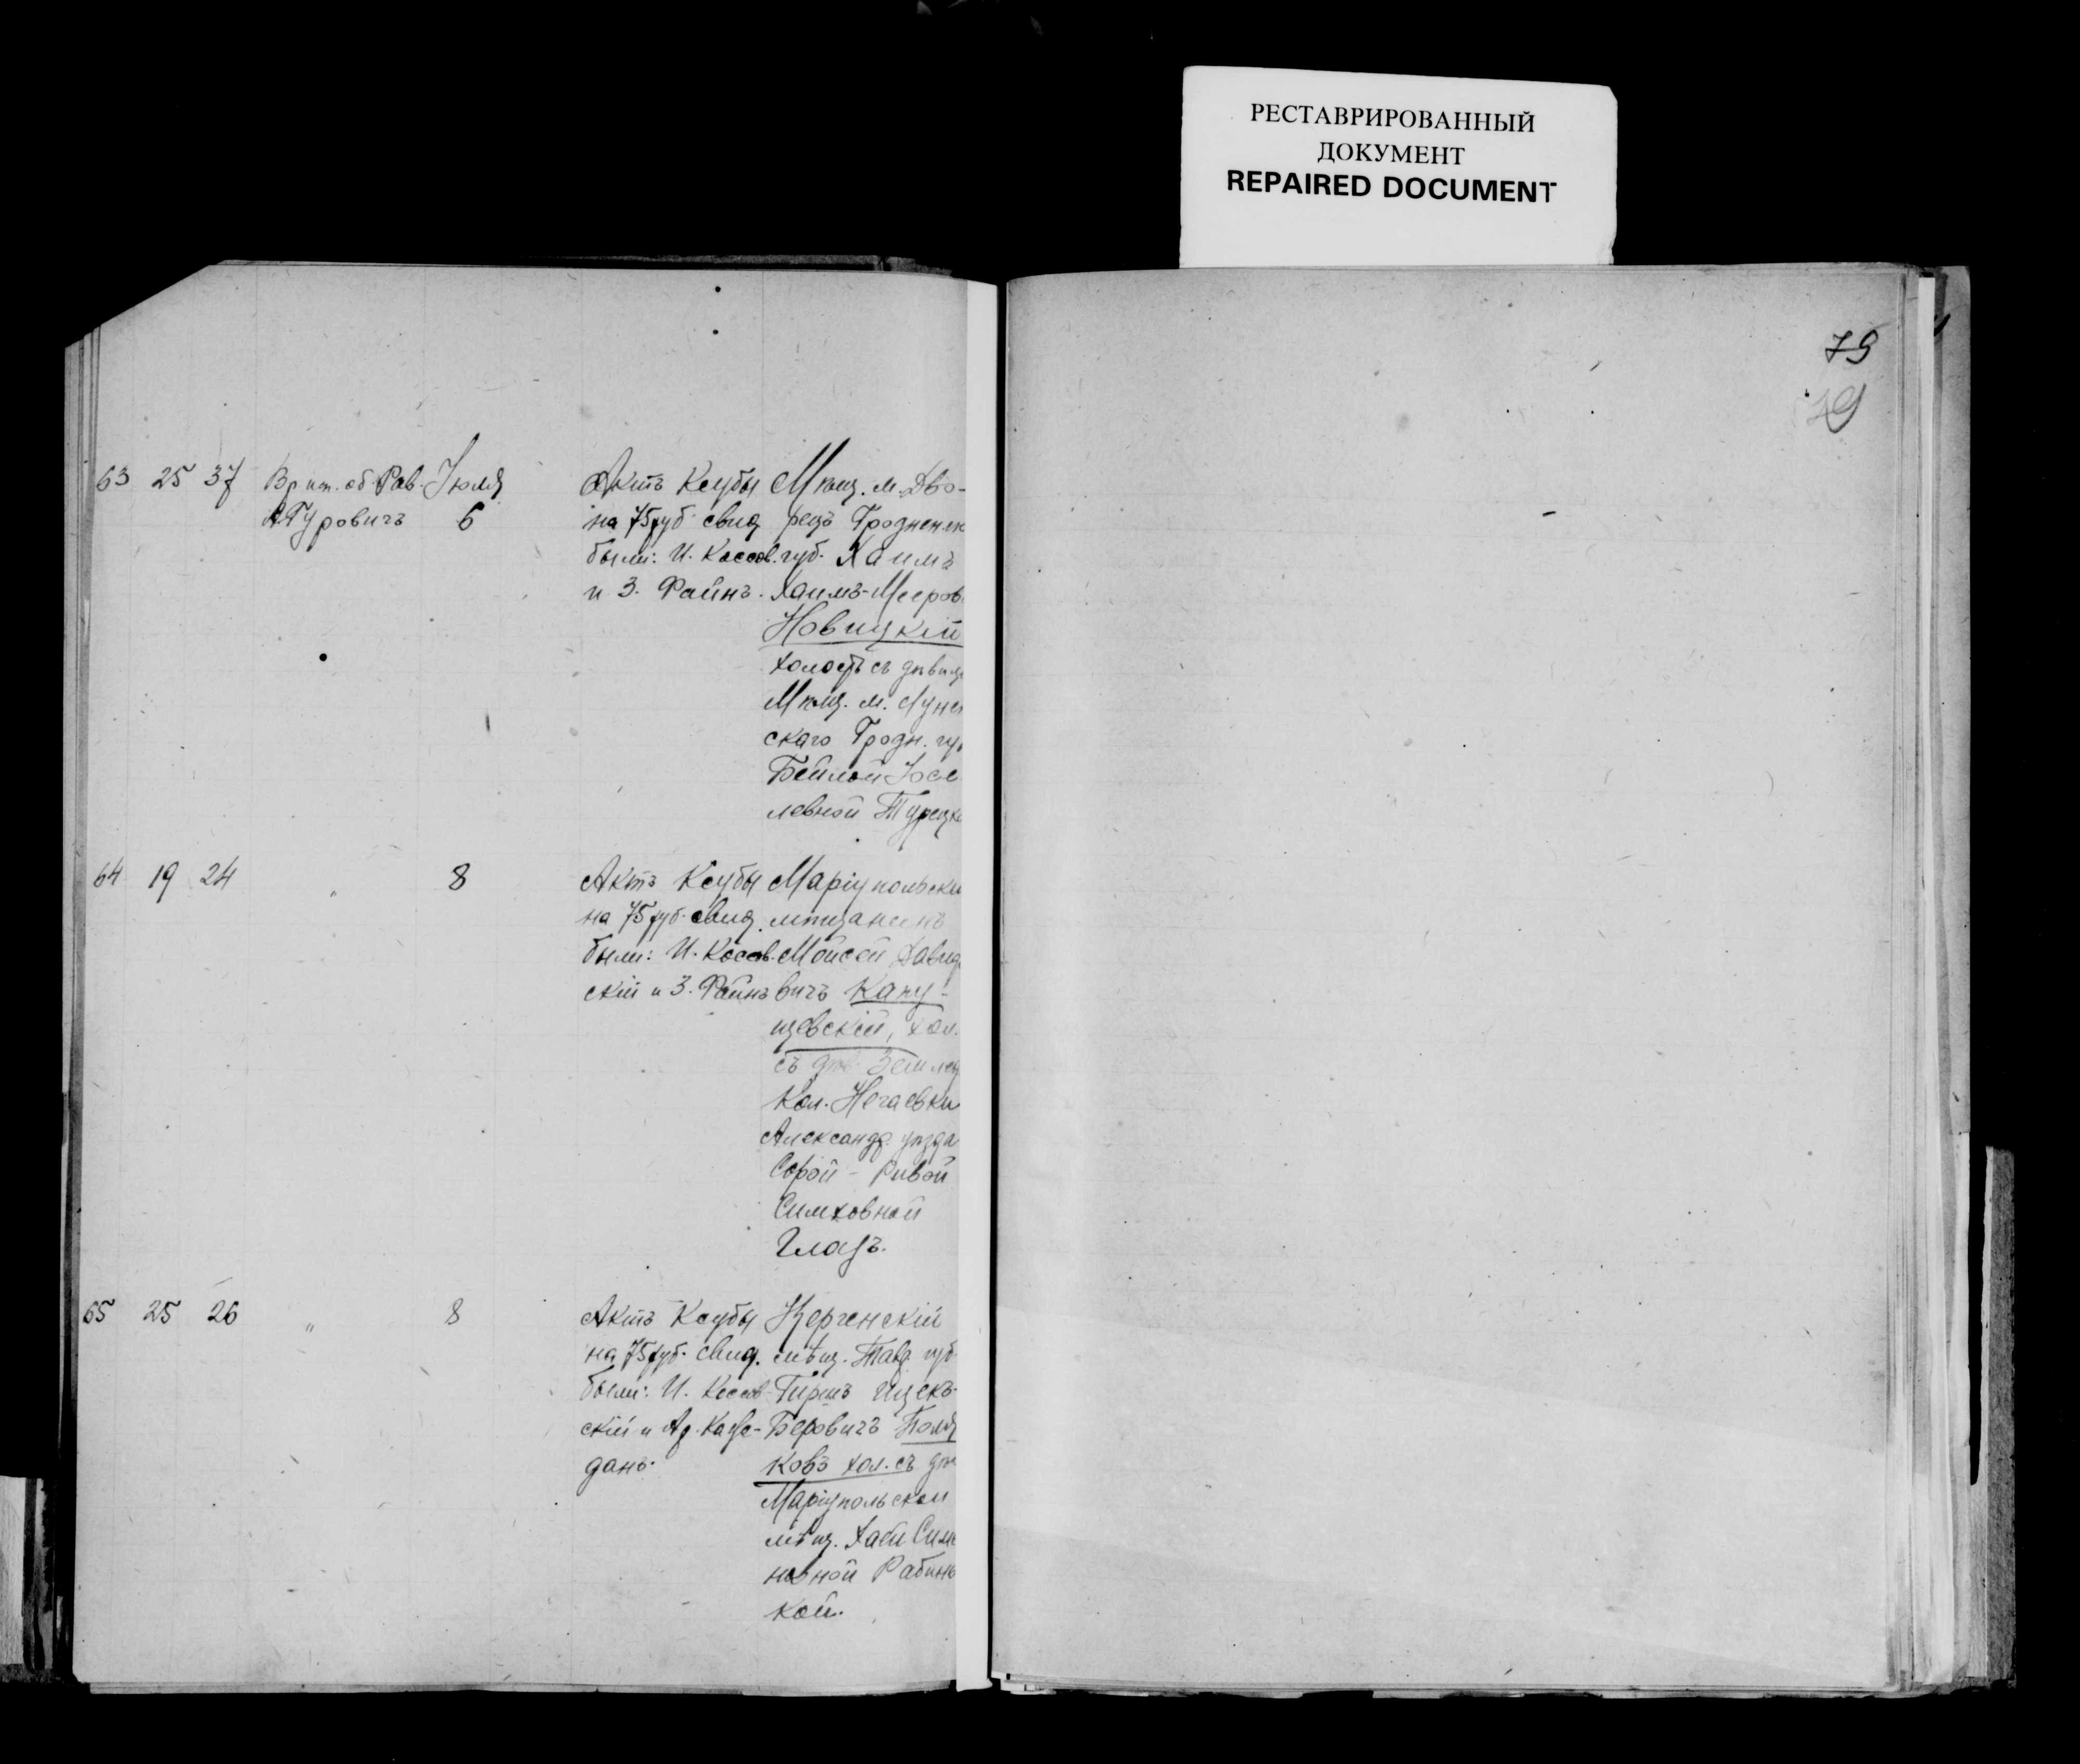 РЕСТАВРИРОВАННЫЙ
ДОКУМЕНТ
REPAIRED DOCUMENT
79
79
63 25 37 Вр. об. Рав. Гуровичъ Іюля 6
Актъ Ксубы
на 75 руб. свид.
были: И. Коссов.
и З. Файнъ.
Мѣщ. м. Дво-
рецъ Гродненск
губ. Хаимъ
Хаимъ-Мееров
Новицкій
холостъ съ дѣвиц
Мѣщ. м. Лунен
скаго Гродн. гу
Бейлой Іосе
левной Турецк
64 19 24 " 8
Актъ Ксубы
на 75 руб. свид.
были: И. Коссов.
скій и З. Файнъ
Маріупольскі
мѣщанинъ
Мойсей Давид
вичъ Капу-
щевскій, хол.
съ дѣв. Землед
Кол. Нечаевки
Александр. уѣзда
Сорой - Ривой
Симховной
Глазъ.
65 25 26 " 8
Актъ Ксубы
на 75 руб. свид.
были: И. Коссов
скій и
данъ.
Керченскій
мѣщ. Тавр. губ
Гиршъ Ицекъ-
Беровичъ Поля
ковъ хол. съ дѣ
Маріупольской
мѣщ. Хаей Симо
новной Рабино
кой.